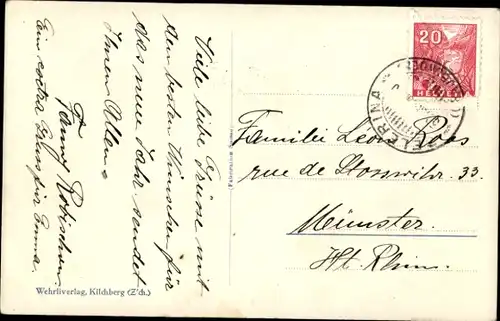 Viele liebe Grüsse mit
den besten Wünschen für
das neue Jahr sendet
Ihnen Allen
Fanny
Ein extra Gruss für Emma.
Wehrliverlag, Kilchberg (Z'ch.)
20
HELVETIA
CELERINA
Familie Leon Roos
rue de 33.
Münster
Ht. Rhin.